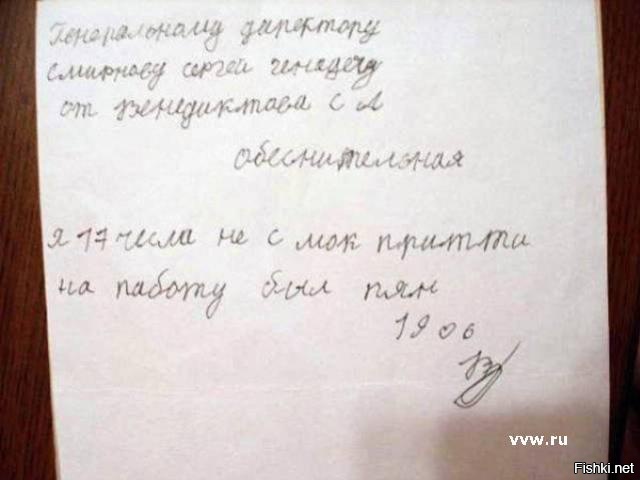 Генеральному директору
смирнову сергей генадечу
от Венедиктова С Л
обеснительная
я 17 чесла не с мок притти
на работу был пян
19 06
vvw.ru
Fishki.net